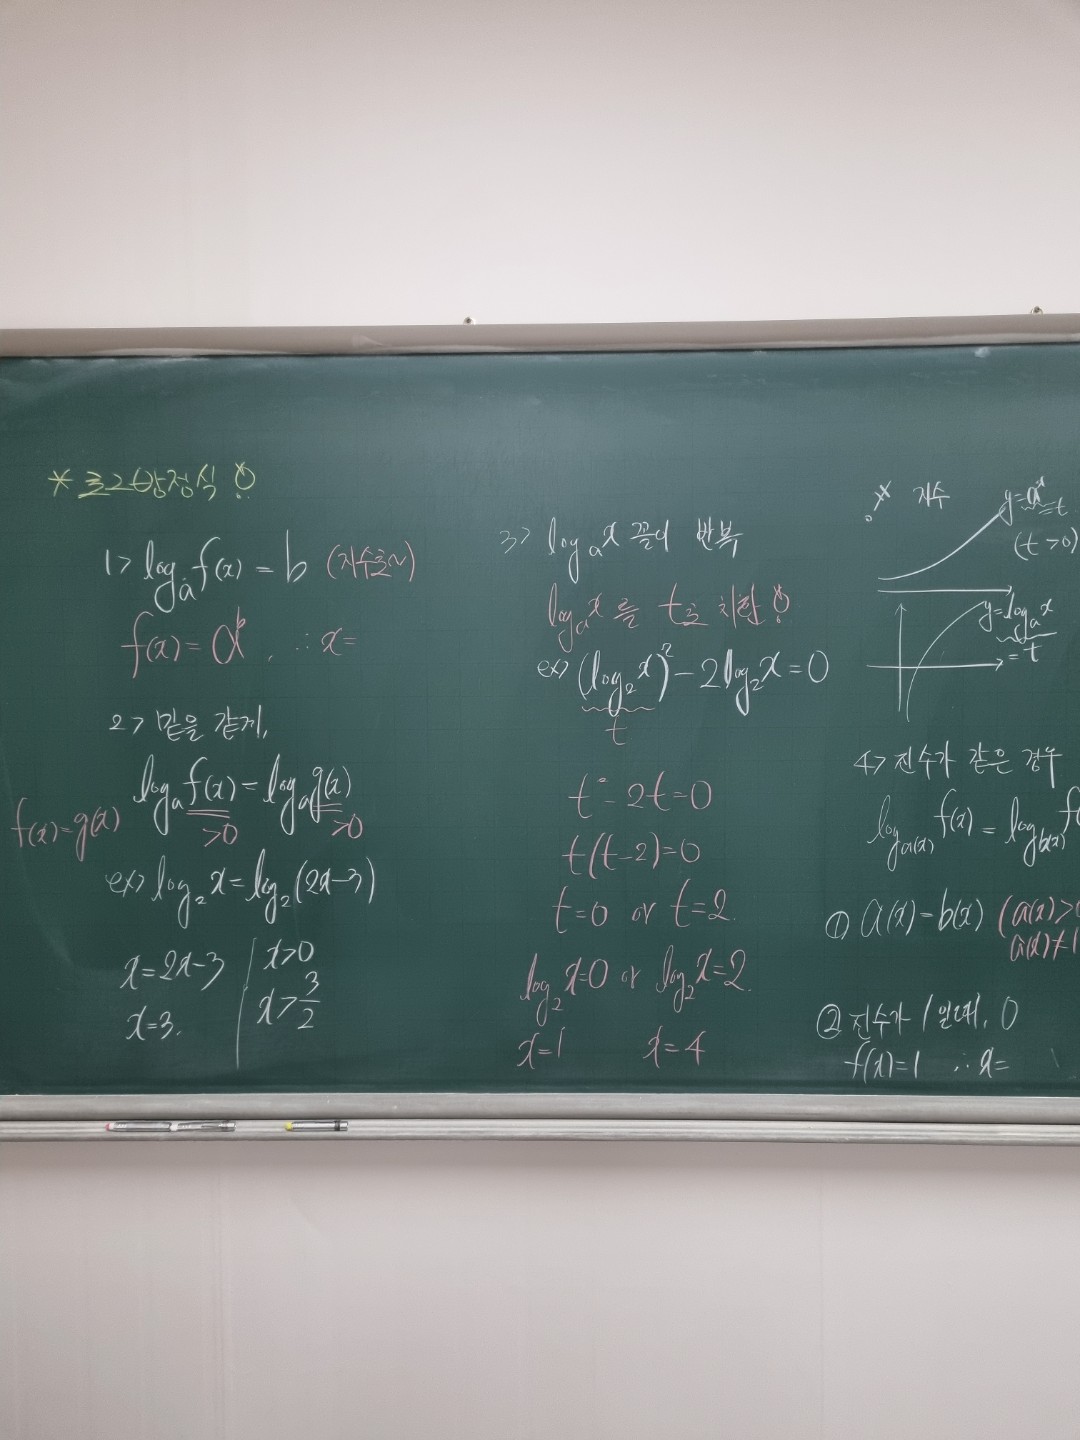 * 로그방정식!
1> log_a f(x) = b (지수로~)
f(x) = a^b, ∴ x =
2> 밑을 같게,
log_a f(x) = log_a g(x)
>0 >0
f(x)=g(x)
ex> log_2 x = log_2 (2x-3)
x=2x-3 | x>0
x=3. | x>3/2
3> log_a x 꼴이 반복
log_a x 를 t로 치환!
ex> (log_2 x)^2 - 2log_2 x = 0
t
t^2 - 2t = 0
t(t-2)=0
t=0 or t=2.
log_2 x=0 or log_2 x=2.
x=1 x=4
지수
y=a^x
=t
(t>0)
y=log_a x
=t
4> 진수가 같은 경우
log_a(x) f(x) = log_b(x) f(
① a(x)=b(x) (a(x)>0
a(x)≠1
② 진수가 1일때, 0
f(x)=1 ∴ x=